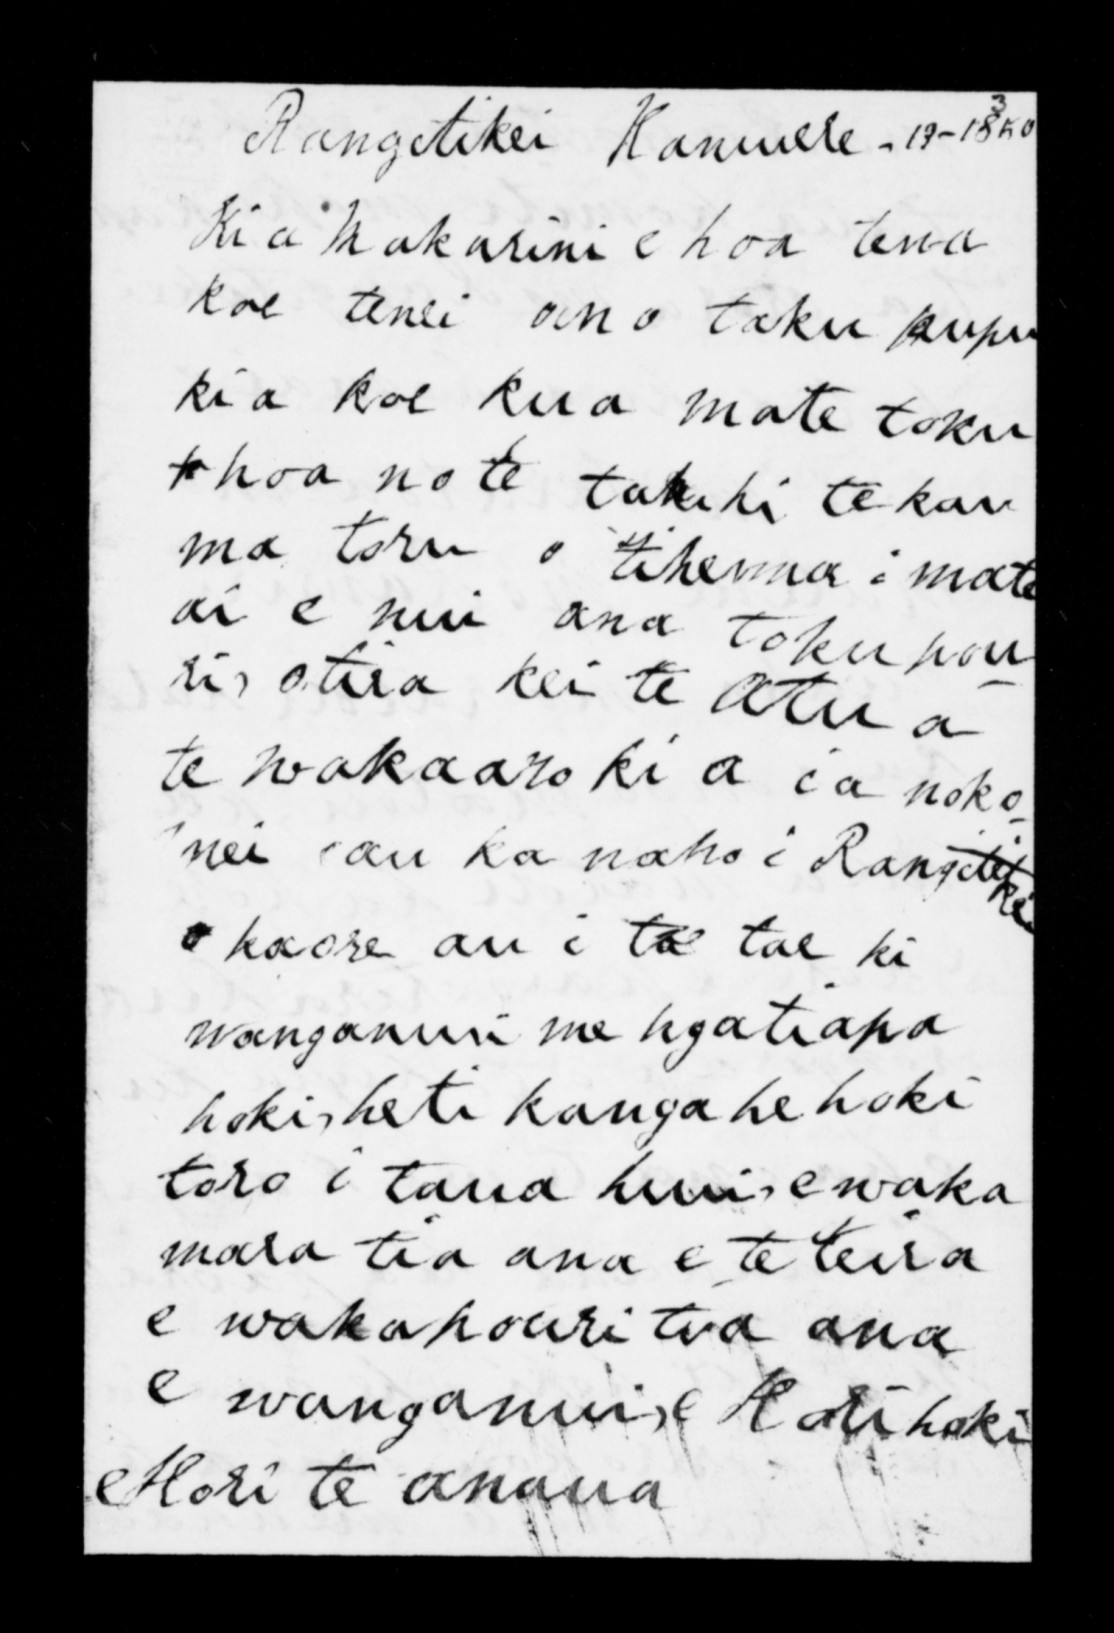 Rangitikei Hanuere - 19 - 18
Kia Makarini e hoa tena
koe tenei ano taku kupu
kia koe kua mate toku
hoa no te takihi tekau
ma toru o tihema i mate
ai e nui ana toku pou
ri, otira kei te Atua
te wakaaro ki a ia noko
nei au ka noho i Rangitikei
kaore au i tae ki
wanganui me ngatiapa
hoki, heti kangahehoki
toro i taua hui, e waka
mara tia ana e te teira
e wakapouri tia ana
e wanganui, e Hori hoki
e Hori te anaua